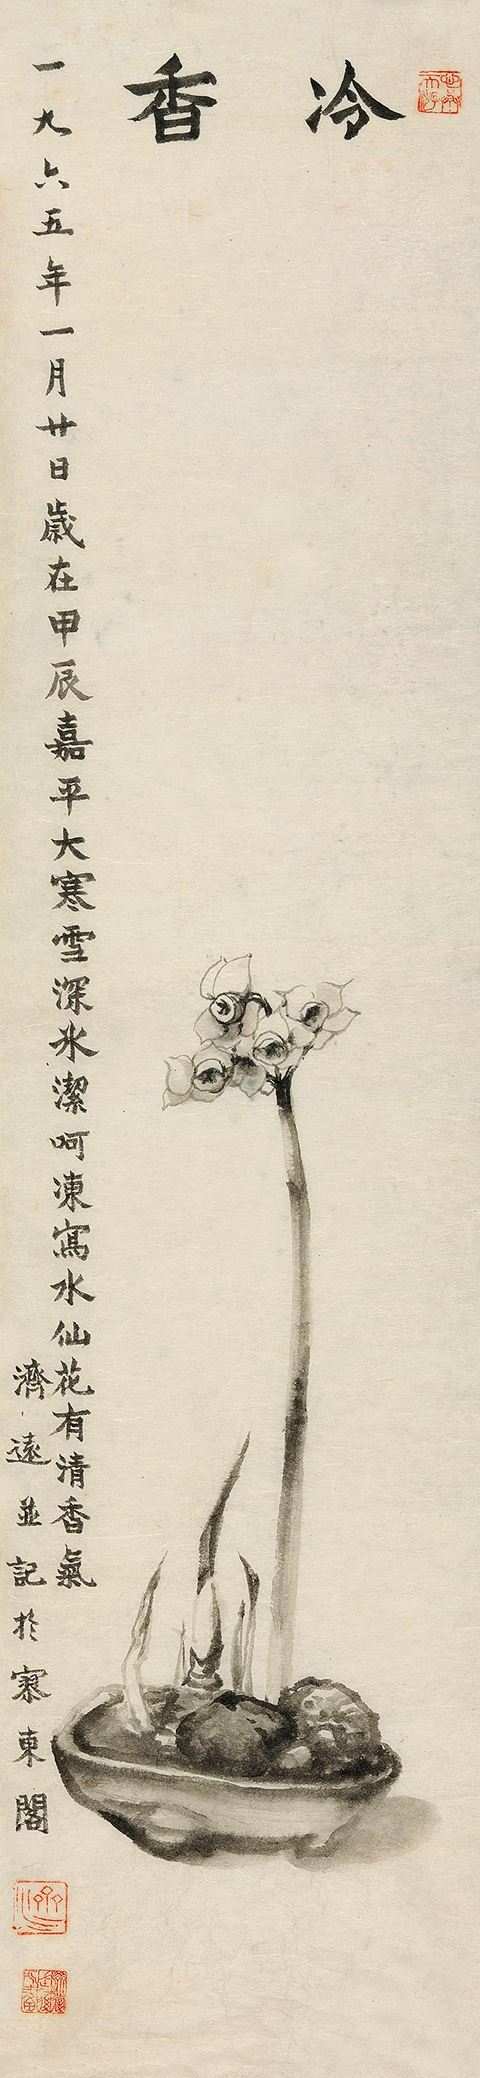 冷香
一九六五年一月廿日歲在甲辰嘉平大寒雪深氷潔呵凍寫水仙花有清香氣
濟遠並記於寒東閣